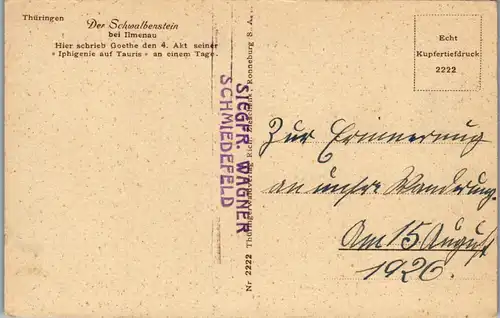 Thüringen
Der Schwalbenstein
bei Ilmenau
Hier schrieb Goethe den 4. Akt seiner
»Iphigenie auf Tauris« an einem Tage.
Echt
Kupfertiefdruck
2222
SIEGFR. WAGNER
SCHMIEDEFELD
Nr 2222 Thüringer Ronneburg S. A.
Zur Erinnerung
an unsre Wanderung.
Am 15 August
1926.